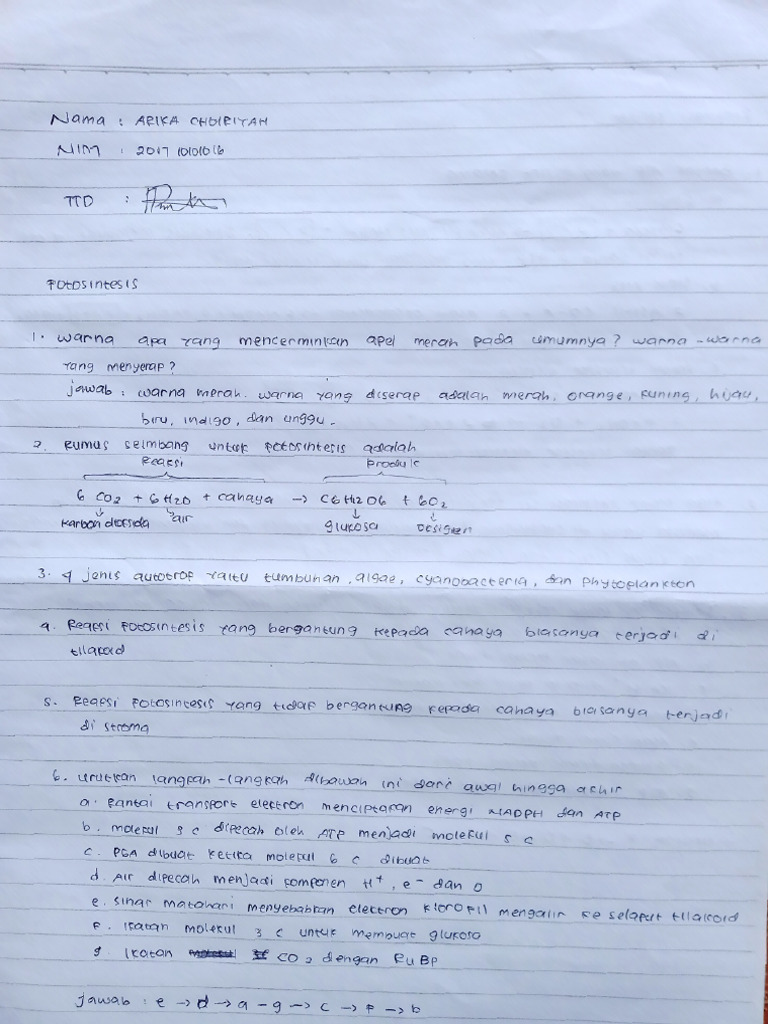 Nama : ARIKA CHOIRIYAH
NIM : 201710101016
TTD :
Fotosintesis
1. Warna apa yang mencerminkan apel merah pada umumnya? warna-warna
yang menyerap?
jawab : warna merah. warna yang diserap adalah merah, orange, kuning, hijau,
biru, indigo, dan unggu.
2. Rumus seimbang untuk fotosintesis adalah
Reaksi Produk
6 CO2 + 6 H2O + cahaya → C6H12O6 + 6O2
karbondioksida air glukosa oksigen
3. 4 jenis autotrof yaitu tumbuhan, algae, cyanobacteria, dan phytoplankton
4. Reaksi fotosintesis yang bergantung kepada cahaya biasanya terjadi di
tilakoid
5. Reaksi fotosintesis yang tidak bergantung kepada cahaya biasanya terjadi
di stroma
6. Urutkan langkah-langkah dibawah ini dari awal hingga akhir
a. Rantai transport elektron menciptakan energi NADPH dan ATP
b. molekul 5 c dipecah oleh ATP menjadi molekul 5 c
c. PGA dibuat ketika molekul 6 c dibuat
d. Air dipecah menjadi komponen H+, e- dan O
e. sinar matahari menyebabkan electron klorofil mengalir ke selaput tilakoid
f. Ikatan molekul 3 c untuk membuat glukosa
g. Ikatan CO2 dengan RuBP
jawab : e → d → a - g → c → f → b